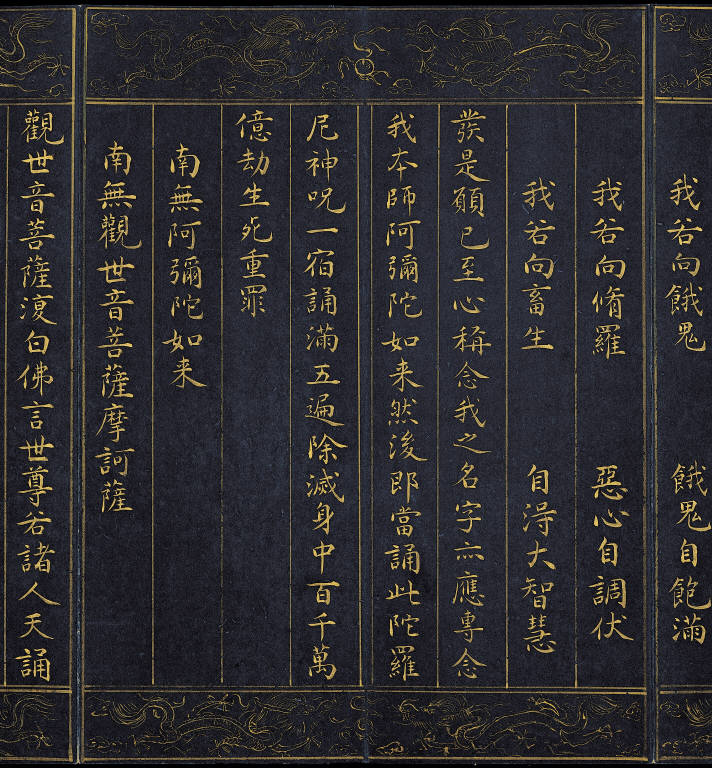 我若向餓鬼　餓鬼自飽滿
我若向脩羅　惡心自調伏
我若向畜生　自淂大智慧
發是願已至心稱念我之名字亦應專念
我本師阿彌陀如来然後即當誦此陀羅
尼神呪一宿誦滿五遍除滅身中百千萬
億劫生死重罪
南無阿彌陀如来
南無觀世音菩薩摩訶薩
觀世音菩薩復白佛言世尊若諸人天誦